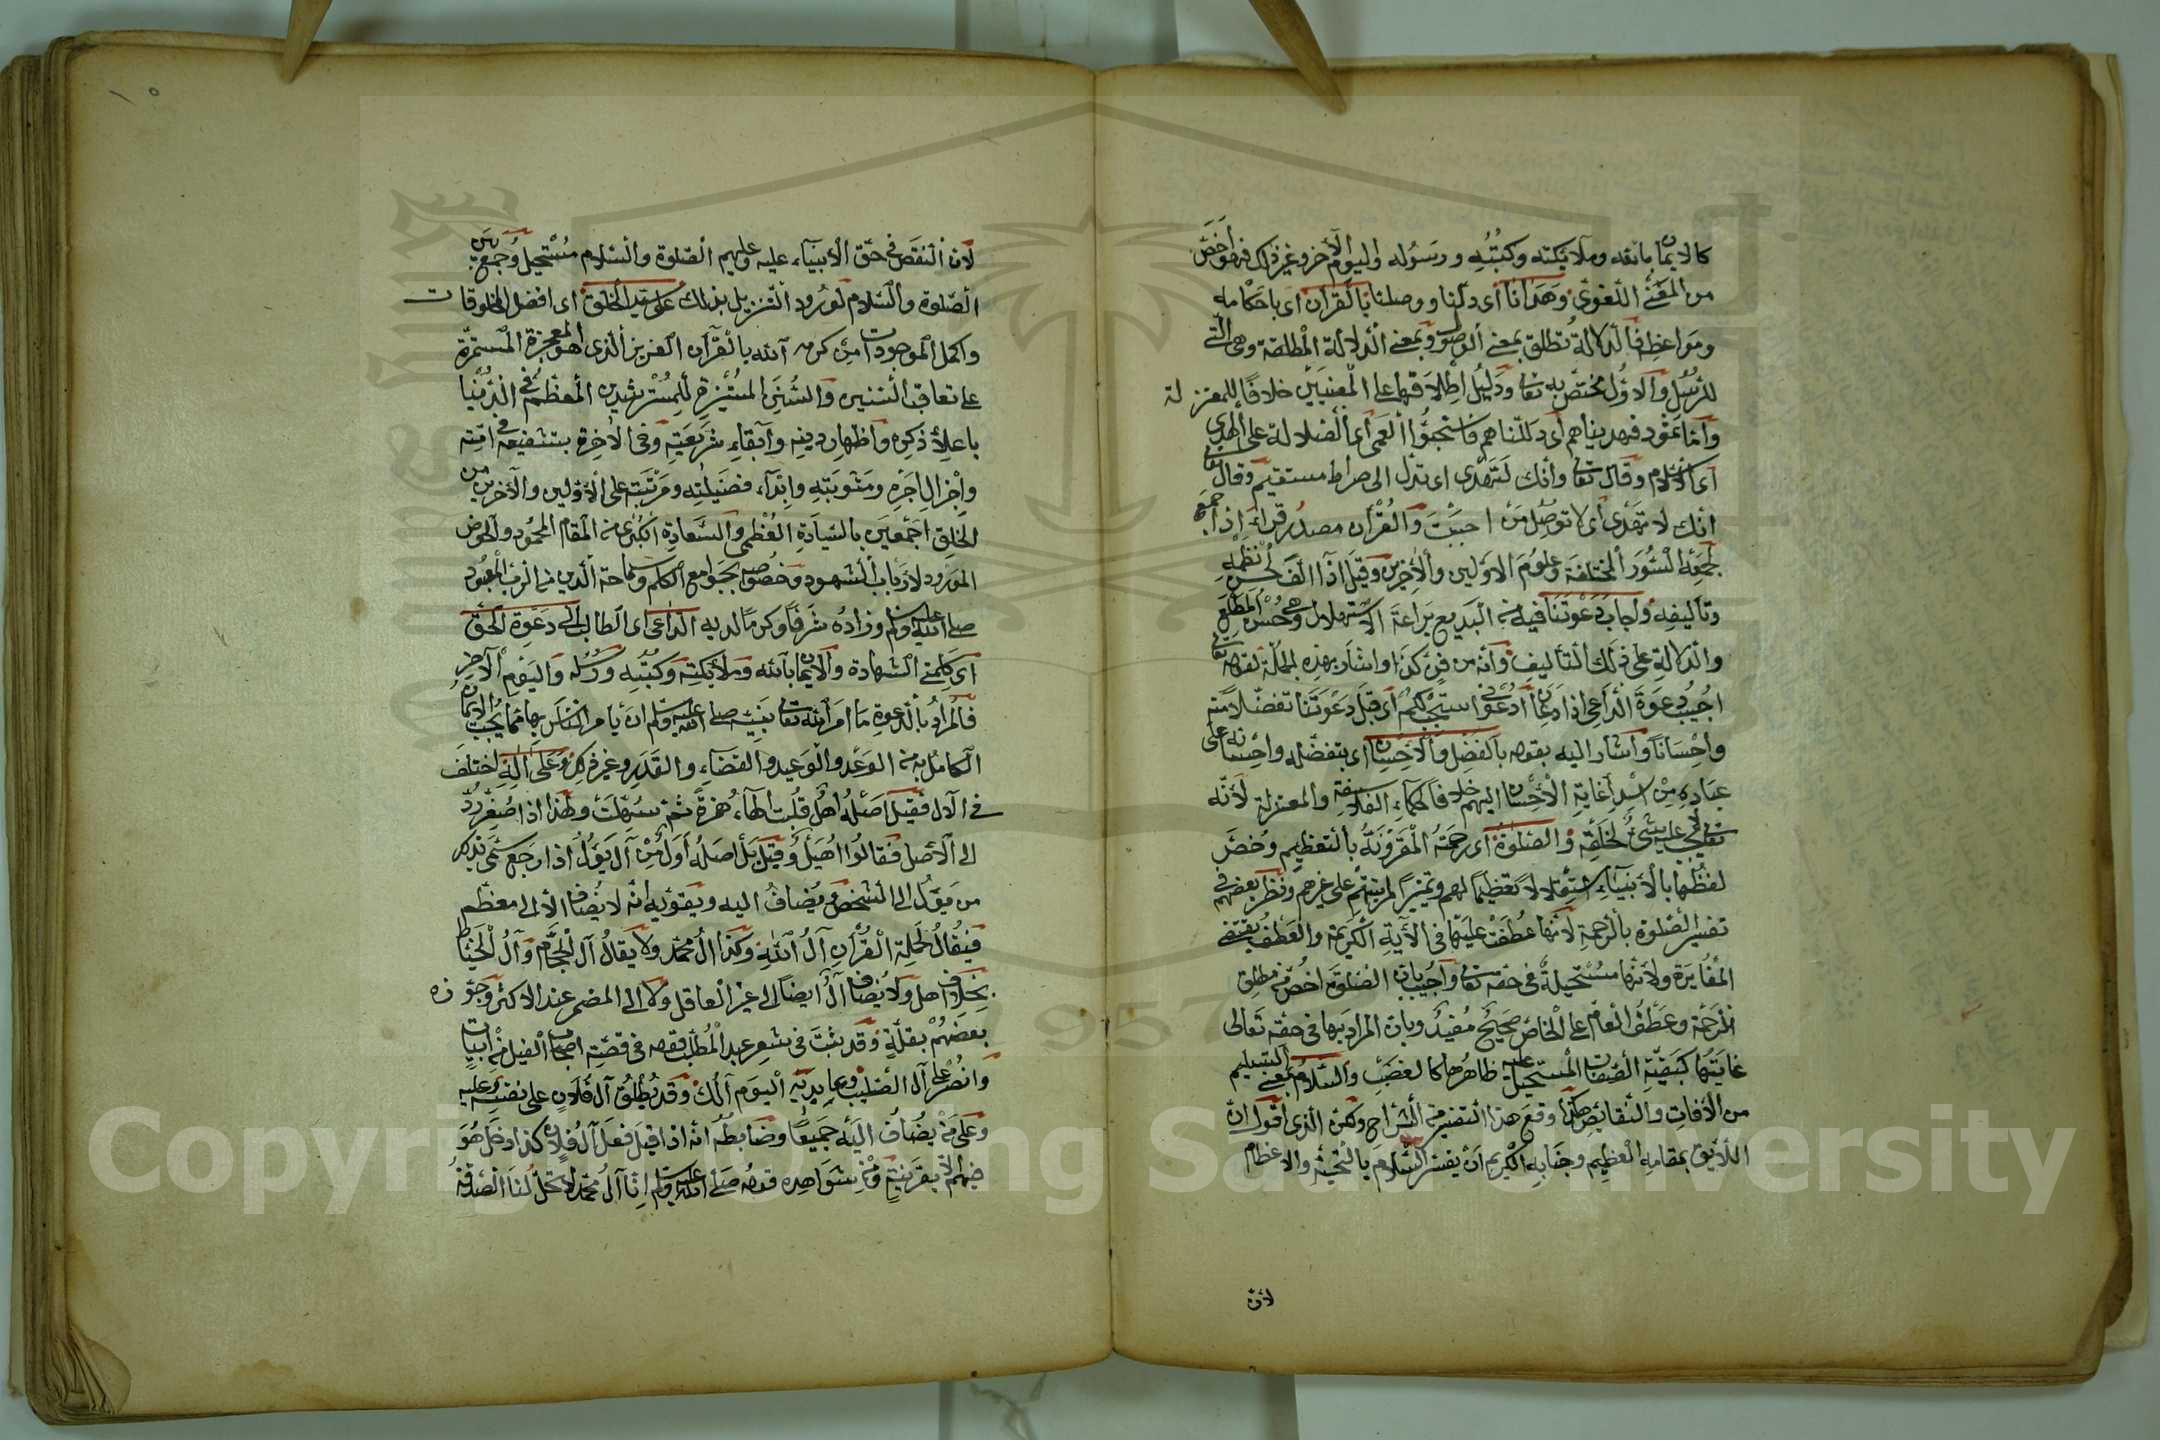 كالايمان بالله وملائكته وكتبه ورسوله واليوم الآخر وغير ذلك فهو اخص
من المعنى اللغوى وهدانا اى دلنا ووصلنا بالقرآن اى باحكامه
ومواعظه فالدلالة تطلق بمعنى الوصول وبمعنى الدلالة المطلقة وهى التى
للرسل والاول مختص به تعالى ودليل اطلاقها على المعنيين خلافا للمعتزلة
واما ثمود فهديناهم اى دللناهم فاستحبوا العمى اى الضلالة على الهدى
اى الاسلام وقال تعالى وانك لتهدى اى تدل الى صراط مستقيم وقال تعالى
انك لا تهدى اى لا توصل من احببت والقرآن مصدر قرأ اذا جمع
لجمعه السور المختلفة وعلوم الاولين والآخرين وقيل اذا الف لحسن نظمه
وتأليفه واجاب دعوتنا فيه من البديع براعة الاستهلال وهى حسن المطلع
والدلالة على ذلك التأليف وانه من فن كذا واشار بهذه الجملة لقوله تعالى
اجيب دعوة الداعى اذا دعان ادعونى استجب لكم اى قبل دعوتنا تفضلا منه
واحسانا واشار اليه بقوله بالفضل والاحسان اى بتفضله واحسانه على
عباده من اسدا غاية الاحسان اليهم خلافا لحكماء الفلاسفة والمعتزلة لانه
تعالى لا يجب عليه شئ لخلقه والصلوة اى رحمته المقرونة بالتعظيم وخص
لفظها بالانبياء استقلالا تعظيما لهم وتمييزا لمرتبتهم على غيرهم ونظر بعضهم فى
تفسير الصلوة بالرحمة لانها عطفت عليها فى الآية الكريمة والعطف يقتضى
المغايرة ولانها مستحيلة فى حقه تعالى واجيب بان الصلوة اخص من مطلق
الرحمة وعطف العام على الخاص صحيح مفيد وبان المراد بها فى حقه تعالى
غايتها كبقية الصفات المستحيل عليه ظاهرها كالغضب والسلام بمعنى التسليم
من الآفات والنقائص هكذا وقع هذا التفسير من الشراح ولكن الذى اقول ان
اللائق بمقامه العظيم وجنابه الكريم ان يفسر السلام بالتحية والاعظام
لان
لان النقص فى حق الانبياء عليه وعليهم الصلوة والسلام مستحيل وجمع بين
الصلوة والسلام لورود التنزيل بذلك على سيد الخلق اى افضل المخلوقات
واكمل الموجودات من كرمه الله بالقرآن العزيز الذى هو المعجزة المستمرة
على تعاقب السنين والسنن المستنيرة للمسترشدين المعظم فى الدنيا
باعلاء ذكره واظهار دينه وابقاء شريعته وفى الآخرة بتشفيعه فى امته
واجزال اجره ومثوبته وابداء فضيلته ومرتبته على الاولين والآخرين من
الخلق اجمعين بالسيادة العظمى والسعادة الكبرى من المقام المحمود والحوض
المورود لارباب الشهود وخصوص بجوامع الكلم وسماحة الدين من الرب المعبود
صلى الله عليه وسلم وزاده شرفا وكرما لديه الداعى اى الطالب الى دعوة الحق
اى كلمتى الشهادة والايمان بالله وملائكته وكتبه ورسله واليوم الآخر
فالمراد بالدعوة ما امر الله تعالى نبيه صلى الله عليه وسلم ان يأمر الناس بها مما يجب الايمان
الكامل به من الوعد والوعيد والقضاء والقدر وغير ذلك وعلى آله اختلف
فى الآل فقيل اصله اهل قلبت الهاء همزة ثم سهلت ولهذا اذا صغر رد
الى الاصل فقالوا اهيل وقيل بل اصله اول من آل يؤل اذا رجع سمى بذلك
من يؤل الى الشخص ويضاف اليه ويقويه انه لا يضاف الا الى معظم
فيقال لحملة القرآن آل الله وكذا آل محمد ولا يقال آل الحجام وآل الخياط
بخلاف اهل ولا يضاف آل ايضا الى غير العاقل ولا الى المضمر عند الاكثر وجوزه
بعضهم بقلة وقد ثبت فى شعر عبد المطلب قوله فى قصة اصحاب الفيل من ابيات
وانصر على آل الصليب وعابديه اليوم آلك وقد يطلق آل فلان على نفسه وعليه
وعلى من يضاف اليه جميعا وضابطه انه اذا قيل فعل آل فلان كذا دخل هو
فيهم الا بقرينة ومن شواهده قوله صلى الله عليه وسلم انا آل محمد لا تحل لنا الصدقة
Copyright © King Saud University
1957